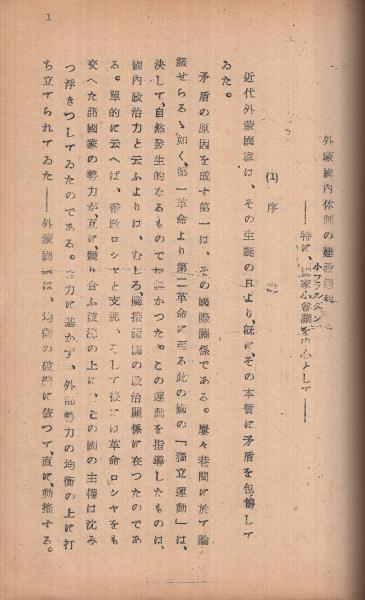 1
外蒙國内体制の建設過程
――特に、國家小會議を中心として――
小フラルダン
(1) 序
近代外蒙國家は、その生誕の日より、既に、その本質に矛盾を包懷して
ゐた。
矛盾の原因を成す第一は、その國際關係である。屢々巷間に於て論
議せらるゝ如く、第一革命より第二革命に至る此の國の「獨立運動」は、
決して、自然發生的なるものでは無かつた。この運動を指導したものは、
國内政治力と云ふよりは、むしろ、隣接諸國の政治關係に在つたのであ
る。單的に云へば、帝政ロシヤと支那、そして後には革命ロシヤをも
交へた諸國家の勢力が、互に、競り合ふ波濤の上に、この國の主權は沈み
つ浮きつしてゐたのである。自力に基かず、外部勢力の均衡の上に打
ち立てられてゐた――外蒙國家は、均衡の破綻に依つて、直に、動搖する。